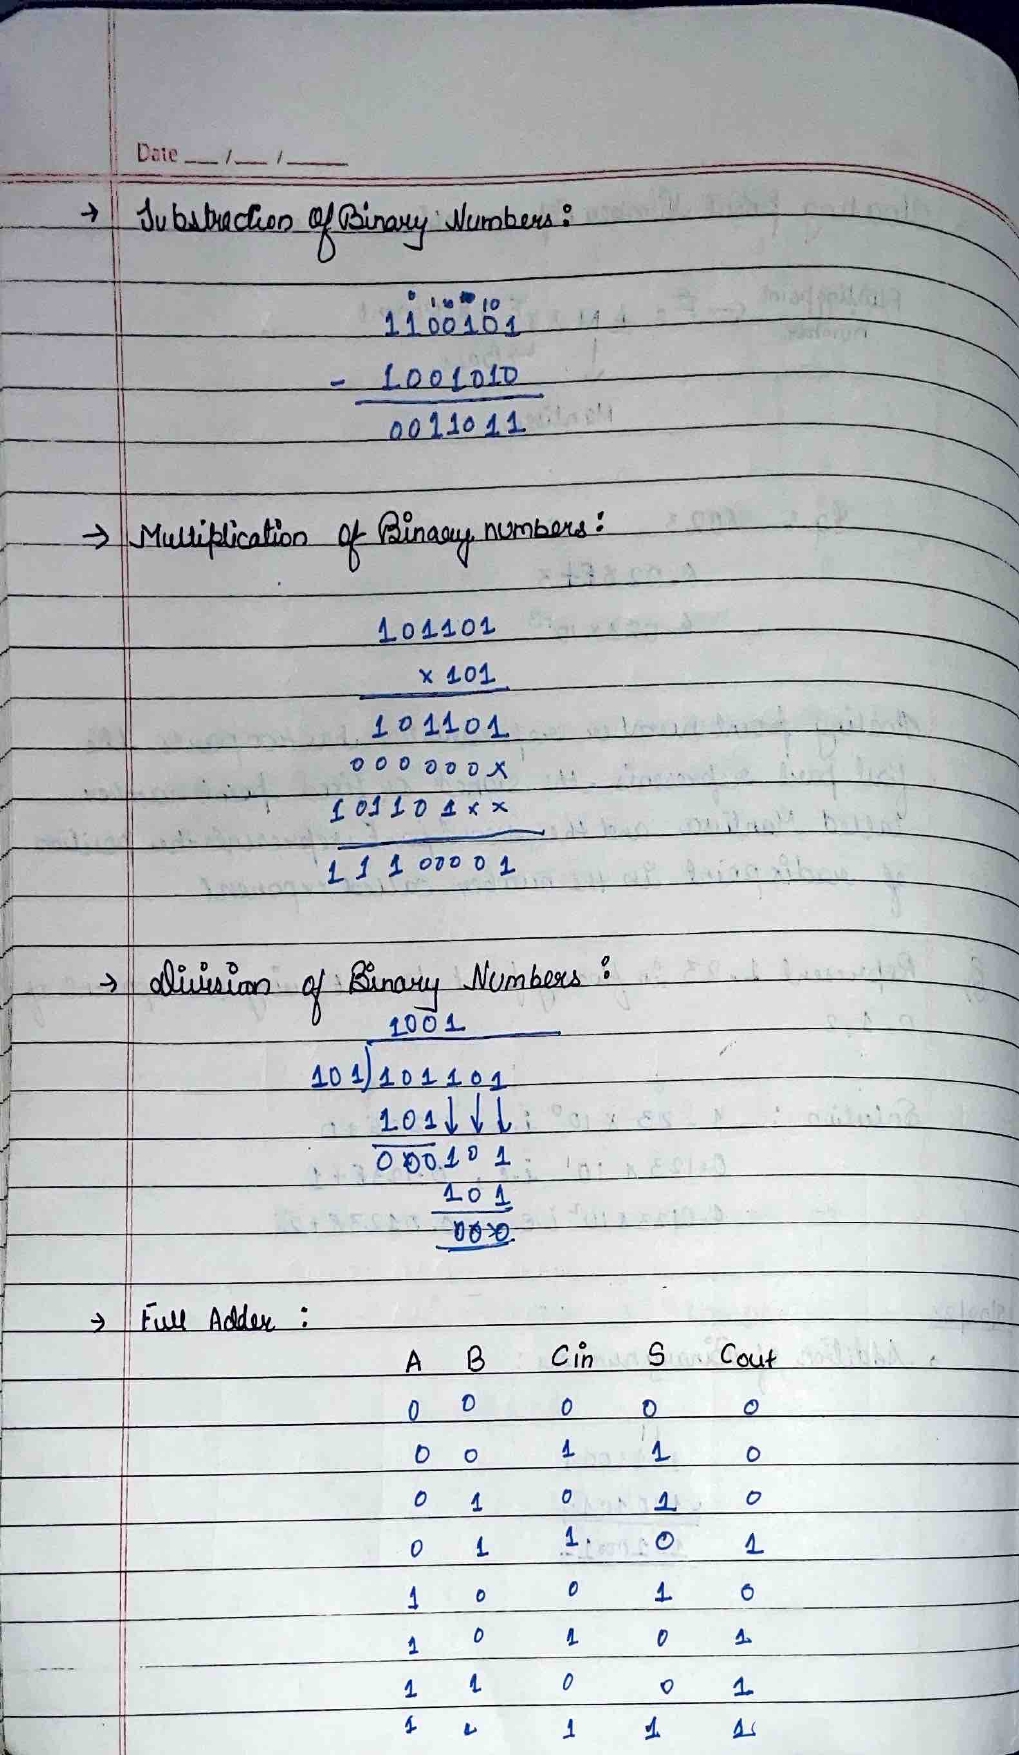 Date __/__/____
→ Substraction of Binary Numbers:
0 10 10
1100101
- 1001010
0011011
→ Multiplication of Binary numbers:
101101
x 101
101101
000000x
101101xx
11100001
→ Division of Binary Numbers:
1001
101)101101
101↓↓↓
000101
101
000
→ Full Adder:
A B Cin S Cout
0 0 0 0 0
0 0 1 1 0
0 1 0 1 0
0 1 1 0 1
1 0 0 1 0
1 0 1 0 1
1 1 0 0 1
1 1 1 1 1